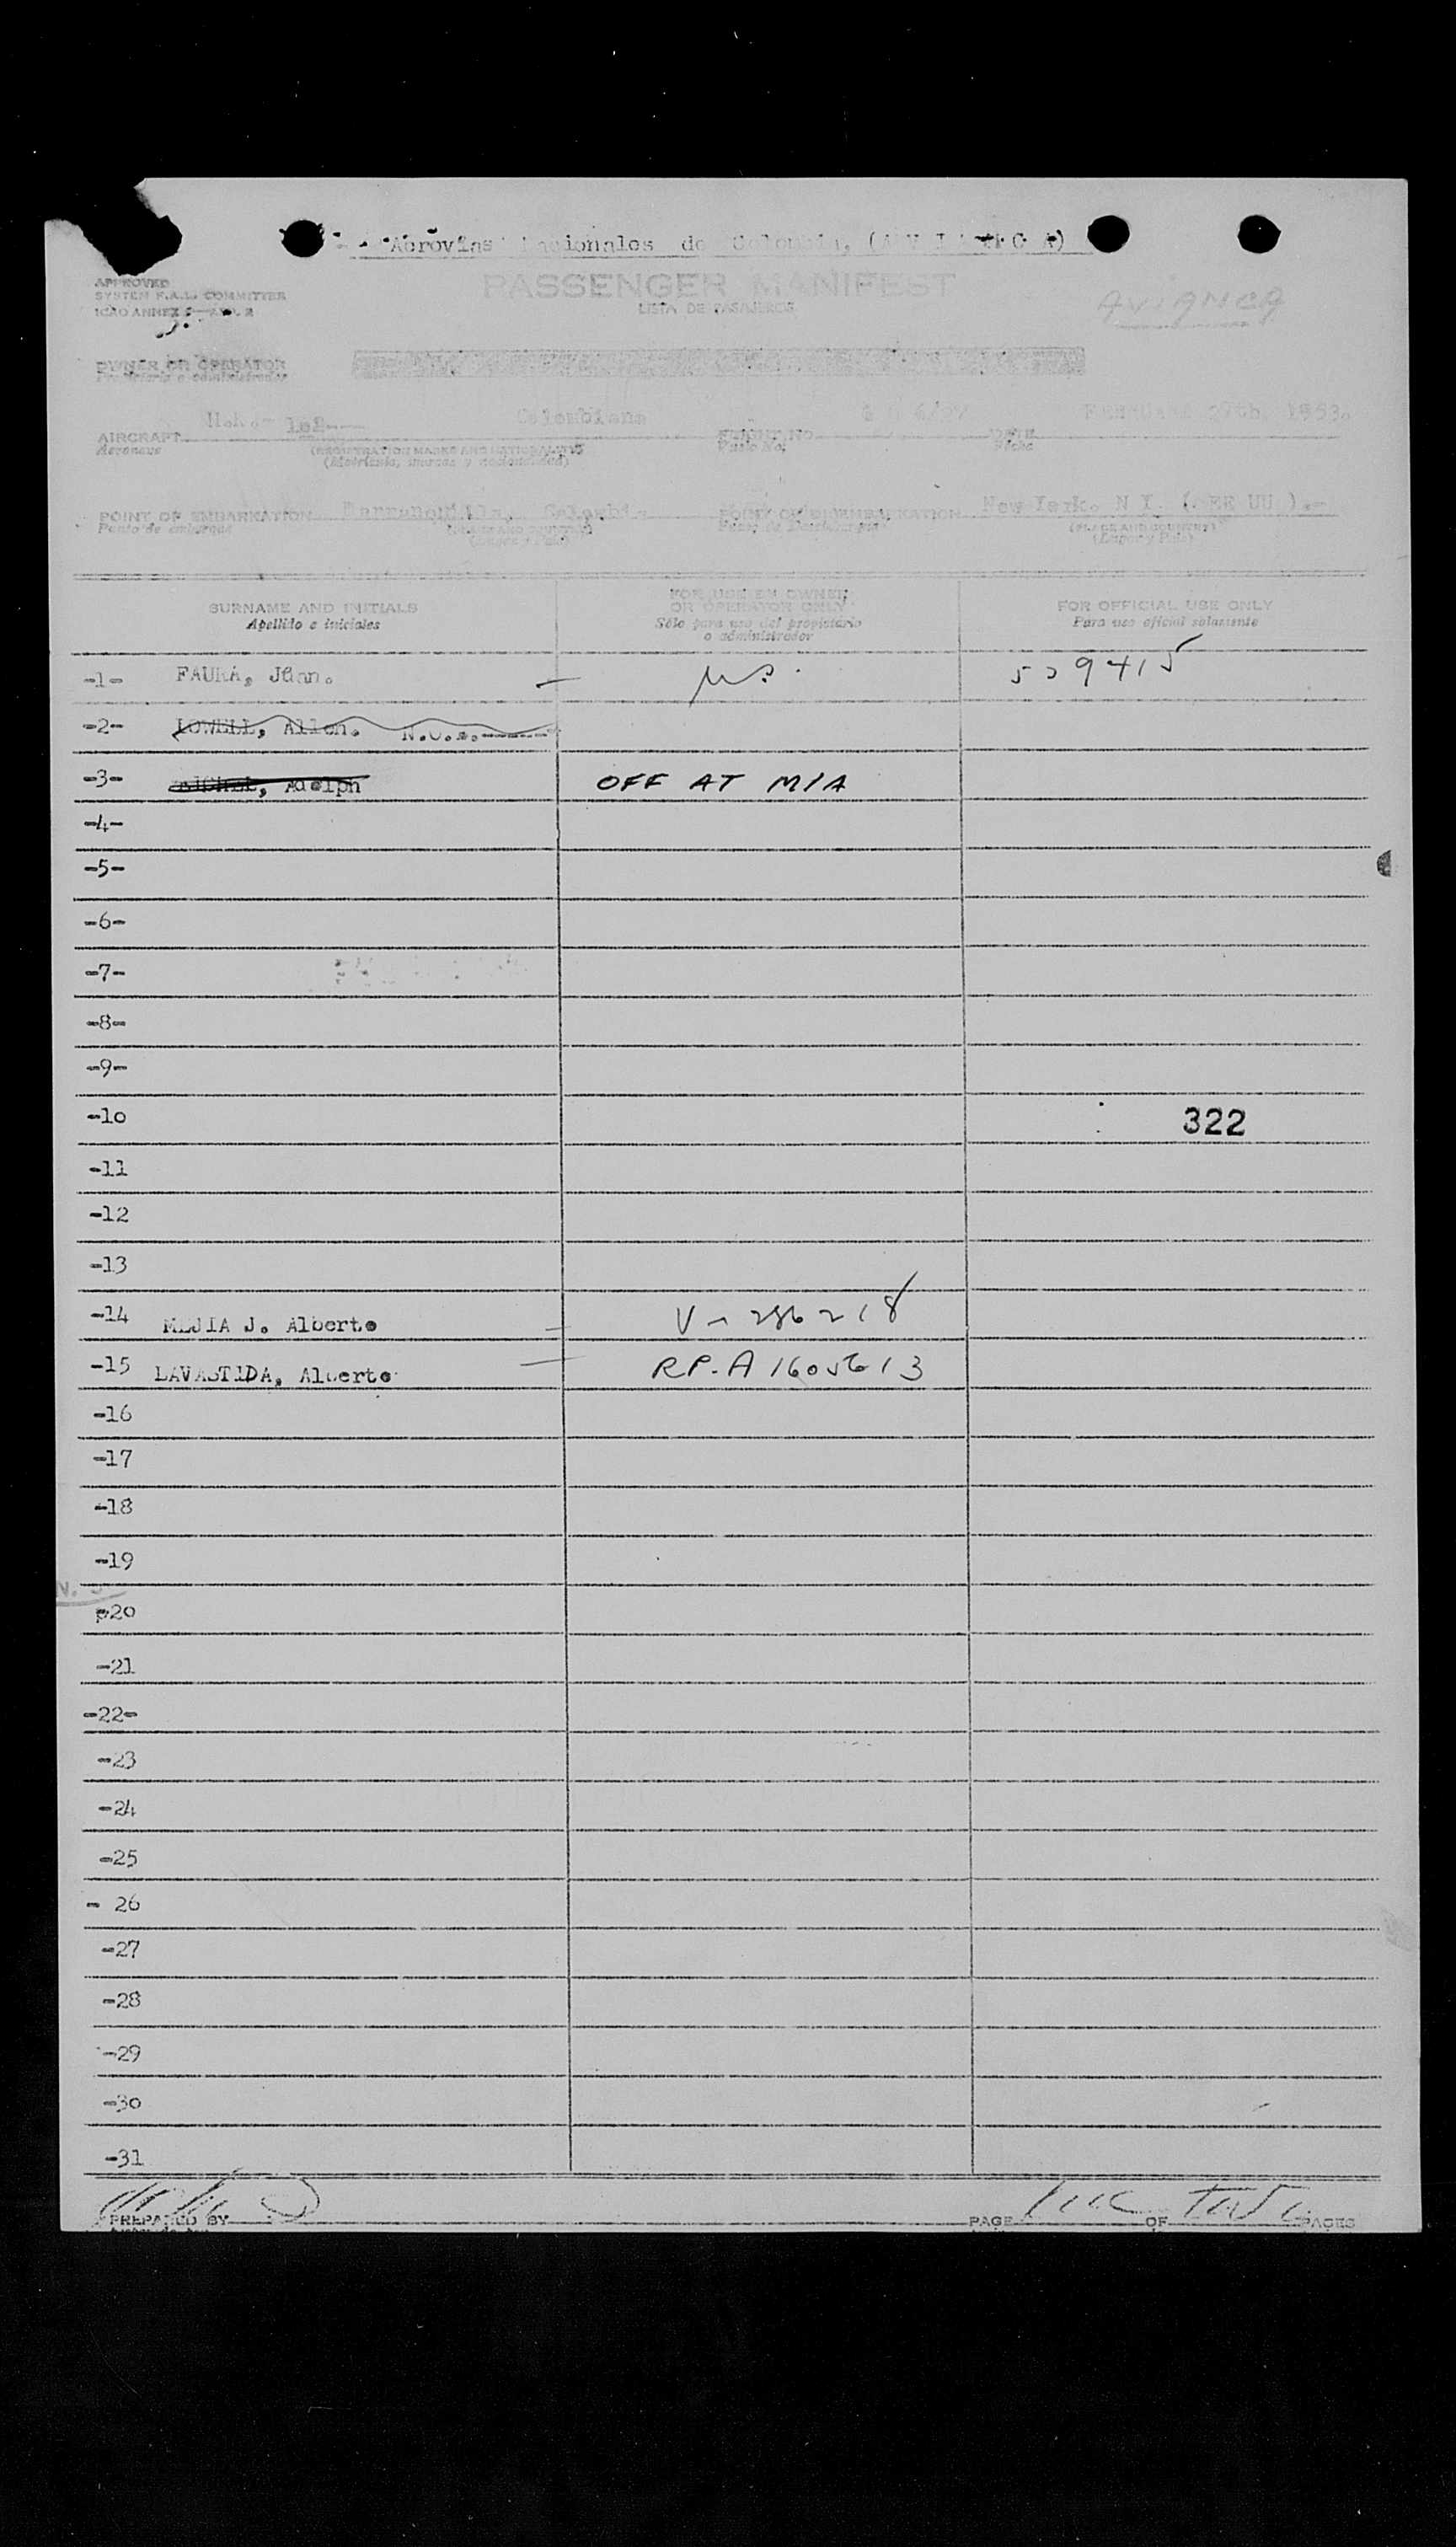 Aerovías Nacionales de Colombia, (A V I A N C A)
APPROVED
SYSTEM F.A.L. COMMITTEE
ICAO ANNEX
PASSENGER MANIFEST
LISTA DE PASAJEROS
AVIANCA
OWNER OR OPERATOR
Propietario o administrador
AIRCRAFT Colombiana FLIGHT NO. DATE February 27th. 1953.
Aeronave (REGISTRATION MARKS AND NATIONALITY) Vuelo No. Fecha
(Matrícula, marcas y nacionalidad)
POINT OF EMBARKATION Barranquilla, Colombia POINT OF DISEMBARKATION New York. N Y. (EE UU ).-
Punto de embarque (PLACE AND COUNTRY) (PLACE AND COUNTRY)
(Lugar y País) (Lugar y País)
SURNAME AND INITIALS FOR USE BY OWNER OR OPERATOR ONLY FOR OFFICIAL USE ONLY
Apellido e iniciales Sólo para uso del propietario o administrador Para uso oficial solamente
-1- FAURA, Juan.
-2- LOWELL, Allen.
-3- Adolph OFF AT MIA
-4-
-5-
-6-
-7-
-8-
-9-
-10 322
-11
-12
-13
-14 MEJIA J. Alberto
-15 LAVASTIDA, Alberto RP-A 1605613
-16
-17
-18
-19
-20
-21
-22-
-23
-24
-25
- 26
-27
-28
-29
-30
-31
PREPARED BY PAGE OF PAGES